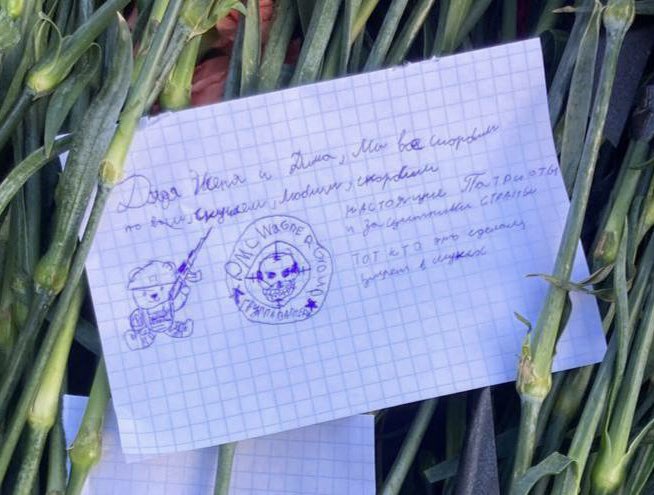 Дядя Женя и Дима, Мы все скорбим
по вам, скучаем, любим, скорбим
настоящие Патриоты
и защитники страны
Тот кто это сделал,
умрет в муках
PMC WAGNER GROUP
ГРУППА ВАГНЕРА